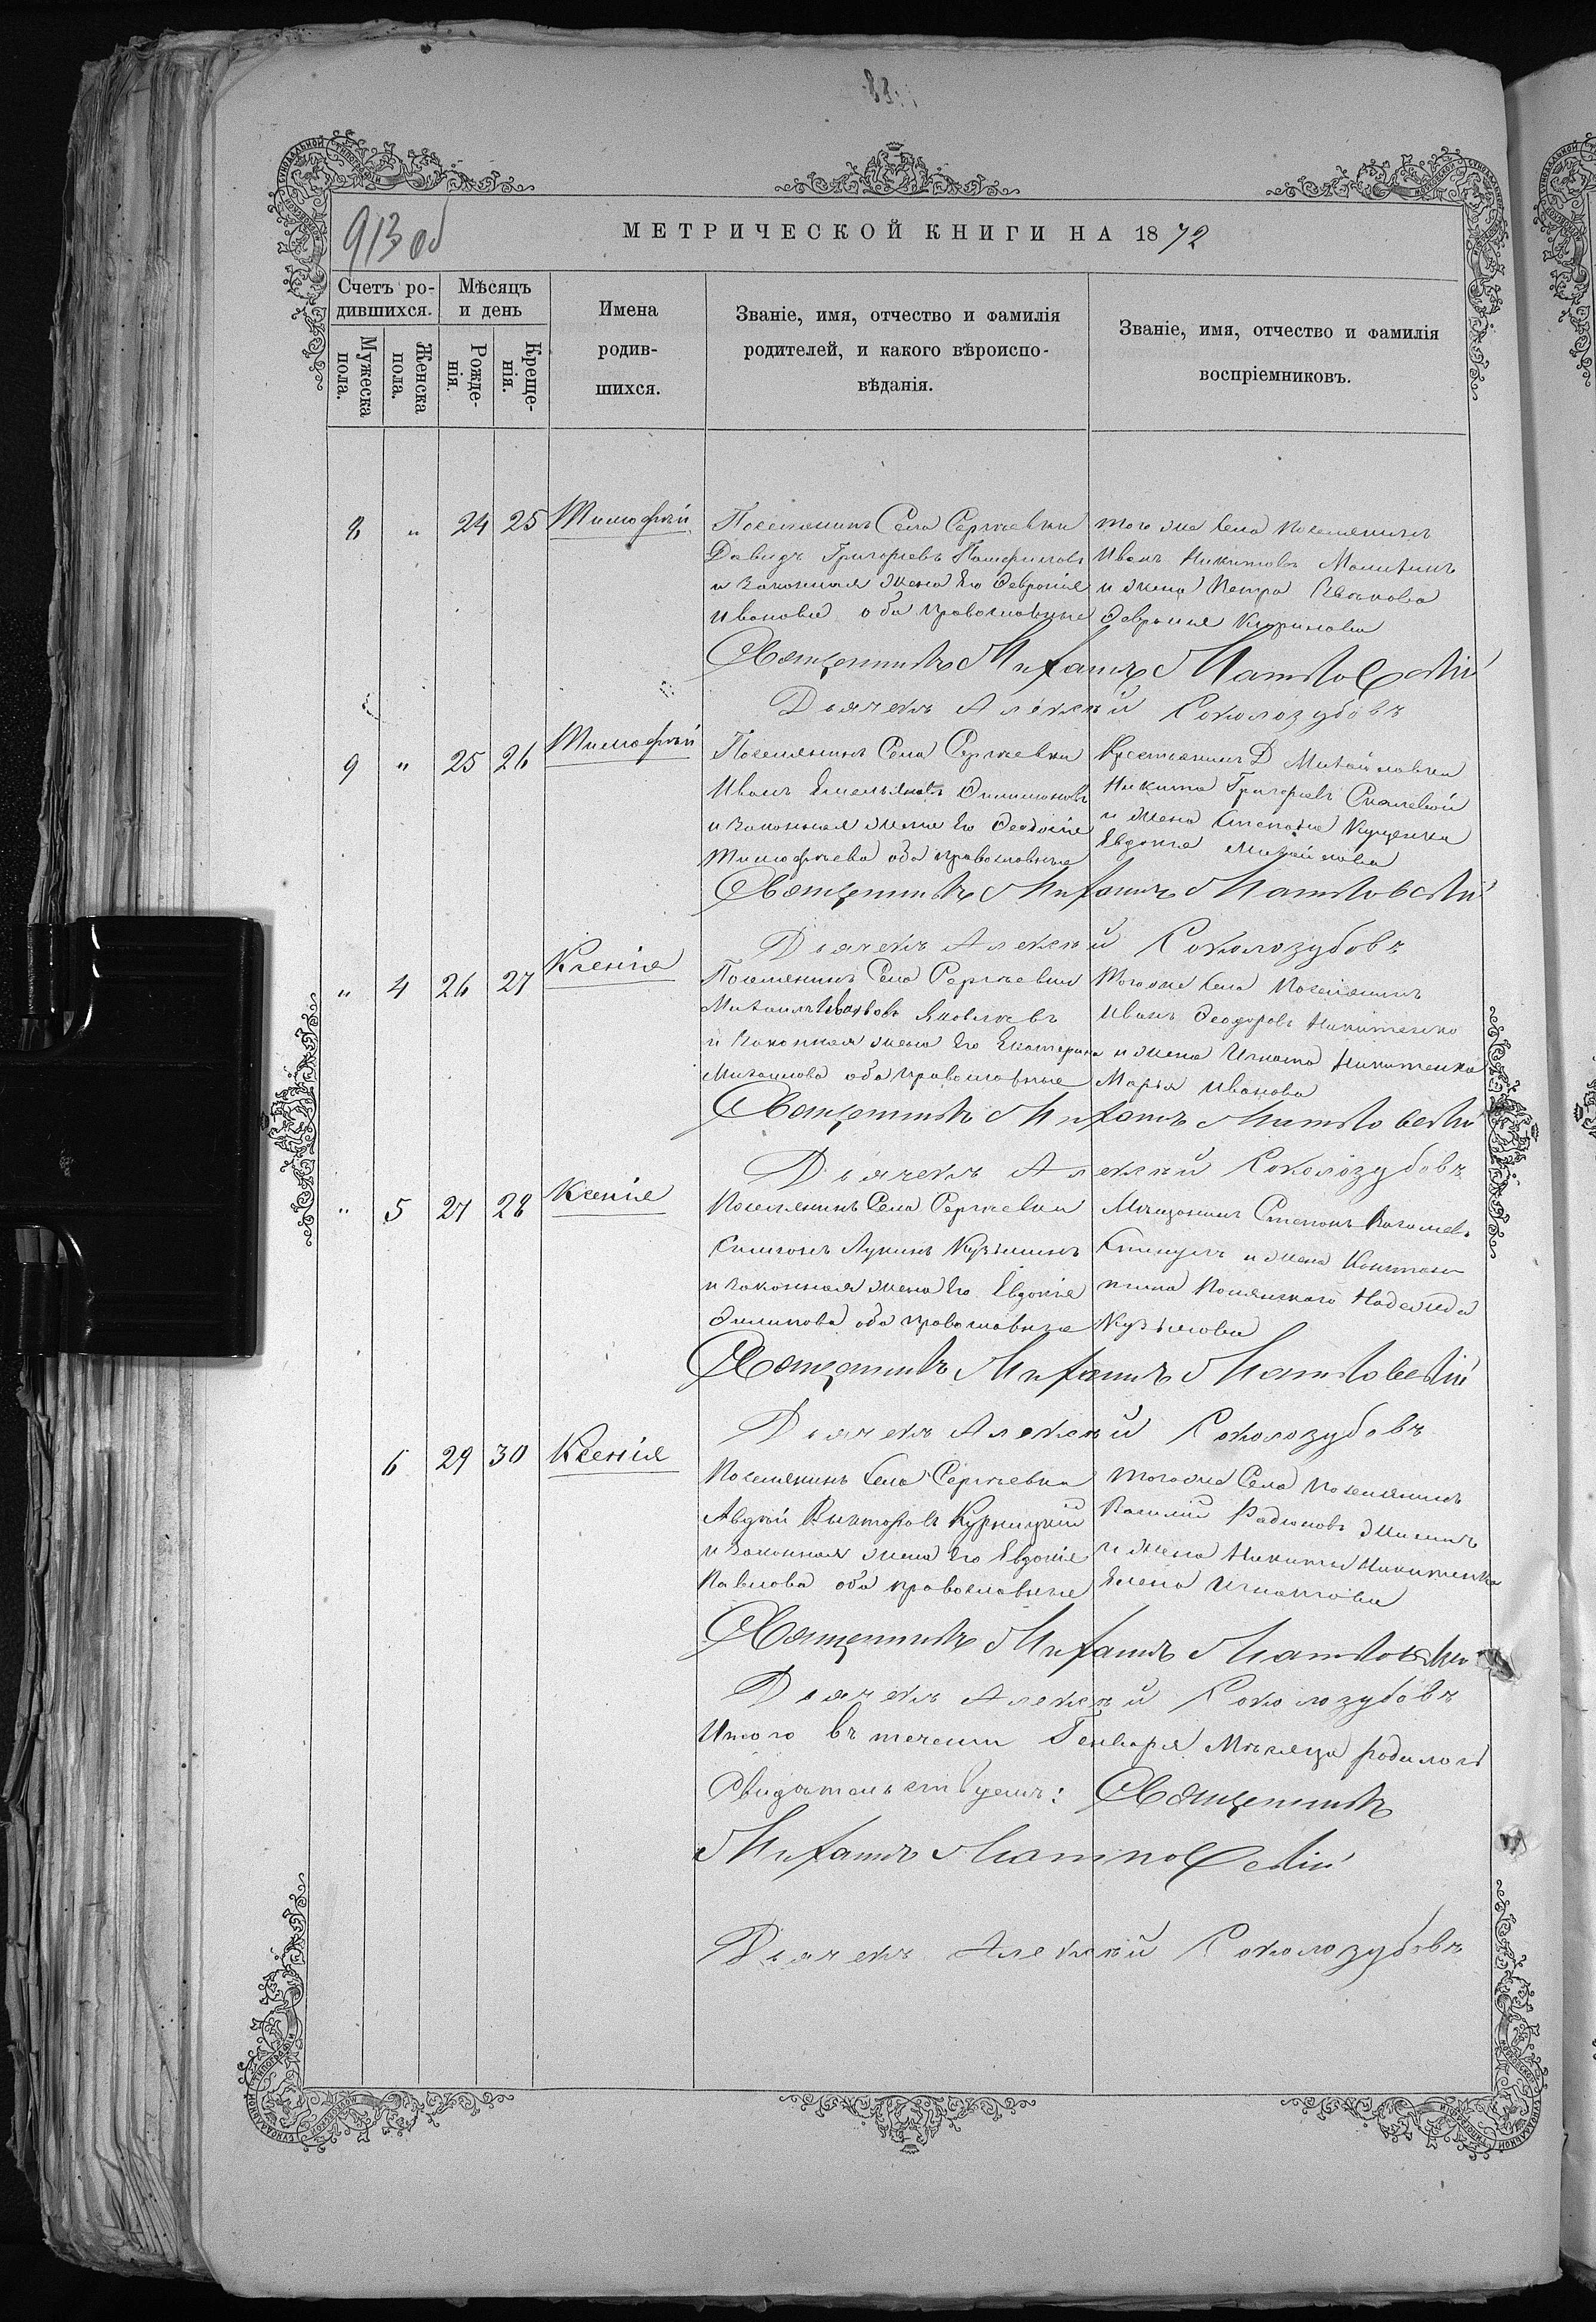 913 об
МЕТРИЧЕСКОЙ КНИГИ НА 1872
Счетъ ро-
дившихся.
Мужеска
пола.
Женска
пола.
Мѣсяцъ
и день
Рожде-
нія.
Креще-
нія.
Имена
родив-
шихся.
Званіе, имя, отчество и фамилія
родителей, и какого вѣроиспо-
вѣданія.
Званіе, имя, отчество и фамилія
воспріемниковъ.
8 " 24 25 Тимофей
Поселянинъ Села Сергѣевки
Давидъ Григорьевъ
и законная жена Его Февронія
Иванова оба православные
того же Села поселянинъ
Иванъ Никитовъ
и жена Петра
Февронія Кирилова
Священникъ Михаилъ Матковскій
Дьячекъ Алексѣй Соколозубовъ
9 " 25 26 Тимофей
Поселянинъ Села Сергѣевки
Иванъ Емельяновъ Филимоновъ
и законная жена Его Феодосія
Тимофѣева оба православные
Крестьянинъ Д Михайловки
Никита Григорьевъ
и жена Степана Куценка
Евдокія Михайлова
Священникъ Михаилъ Матковскій
Дьячекъ Алексѣй Соколозубовъ
" 4 26 27 Ксенія
Поселянинъ Села Сергѣевки
Михаилъ Яковлевъ
и законная жена Его Екатерина
Михаилова оба православные
Того же Села поселянинъ
Иванъ Феодоровъ Никитенко
и жена Игната Никитенка
Марья Иванова
Священникъ Михаилъ Матковскій
Дьячекъ Алексѣй Соколозубовъ
" 5 27 28 Ксенія
Поселянинъ Села Сергѣевки
Симеонъ Лукинъ Кузьминъ
и законная жена Его Евдокія
Филипова оба православные
Мѣщанинъ Степанъ
и жена Констан
тина Надежда
Кузьмова
Священникъ Михаилъ Матковскій
Дьячекъ Алексѣй Соколозубовъ
6 29 30 Ксенія
Поселянинъ Села Сергѣевки
Авдѣй Викторовъ Курницкій
и законная жена Его Евдокія
Павлова оба православные
того же Села поселянинъ
Василій Радионовъ
и жена Никиты Никитенка
Елена Игнатова
Священникъ Михаилъ Матковскій
Дьячекъ Алексѣй Соколозубовъ
Итого въ течении Генваря Мѣсяца родилось
Свидѣтельствуемъ: Священникъ
Михаилъ Матковскій
Дьячекъ Алексѣй Соколозубовъ